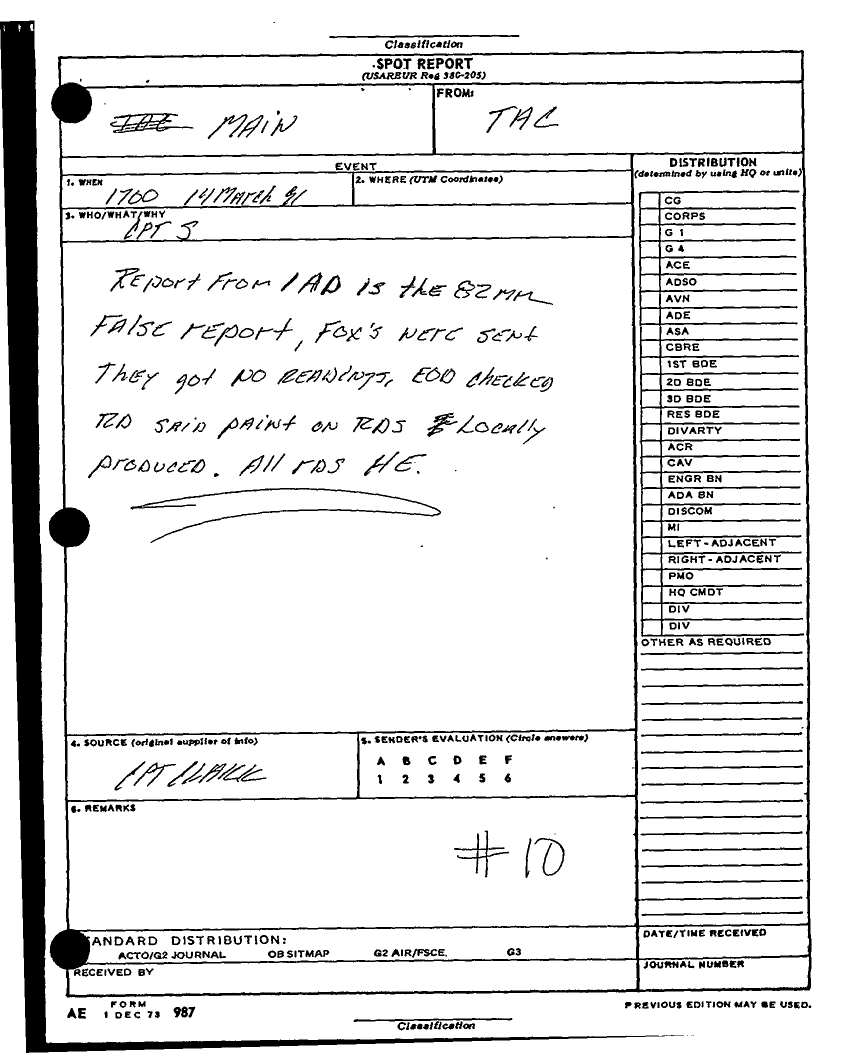 Classification
SPOT REPORT
(USAREUR Reg 380-205)
MAIN
FROM:
TAC
EVENT
1. WHEN
1700 14 March 91
2. WHERE (UTM Coordinates)
3. WHO/WHAT/WHY
CPT S
REport From 1 AD is the 82mm
FAlsE rEport, Fox's wERE sENt
ThEy got NO READINGS, EOD chEckED
RD SAID pAint on RDS Locally
proDucED. All rDS HE.
4. SOURCE (original supplier of info)
CPT CLARK
5. SENDER'S EVALUATION (Circle answers)
A B C D E F
1 2 3 4 5 6
6. REMARKS
#10
STANDARD DISTRIBUTION:
ACTO/G2 JOURNAL OB SITMAP G2 AIR/FSCE. G3
RECEIVED BY
DISTRIBUTION
(determined by using HQ or units)
CG
CORPS
G 1
G 4
ACE
ADSO
AVN
ADE
ASA
CBRE
1ST BDE
2D BDE
3D BDE
RES BDE
DIVARTY
ACR
CAV
ENGR BN
ADA BN
DISCOM
MI
LEFT-ADJACENT
RIGHT-ADJACENT
PMO
HQ CMDT
DIV
DIV
OTHER AS REQUIRED
DATE/TIME RECEIVED
JOURNAL NUMBER
AE FORM 1 DEC 73 987
PREVIOUS EDITION MAY BE USED.
Classification